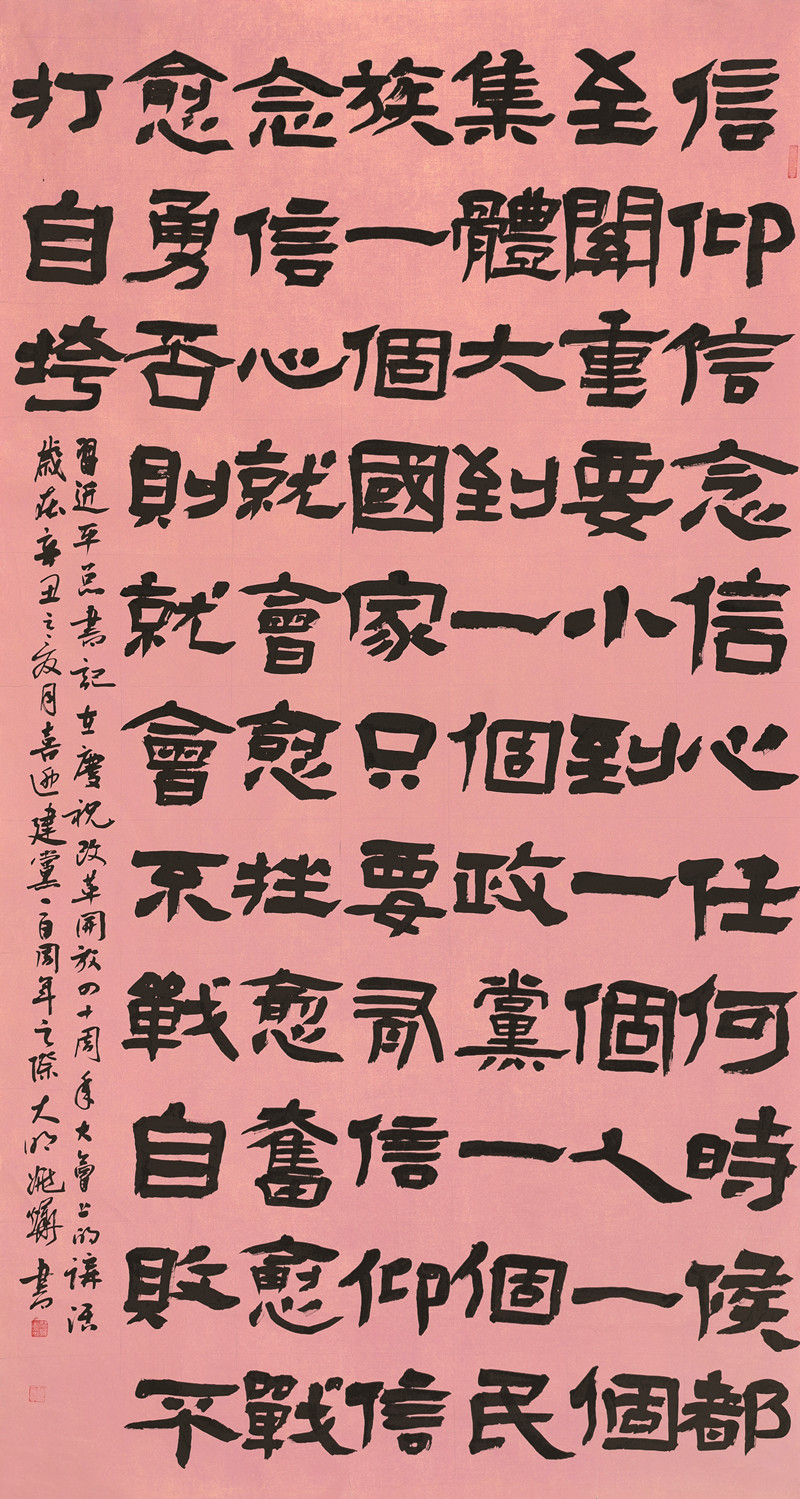 信仰信念信心任何時候都
至關重要小到一個人一個
集體大到一個政黨一個民
族一個國家只要有信仰信
念信心就會愈挫愈奮愈戰
愈勇否則就會不戰自敗不
打自垮
習近平总書記在慶祝改革開放四十周年大會上的講話
歲在辛丑之夏月喜迎建黨一百周年之際大明書